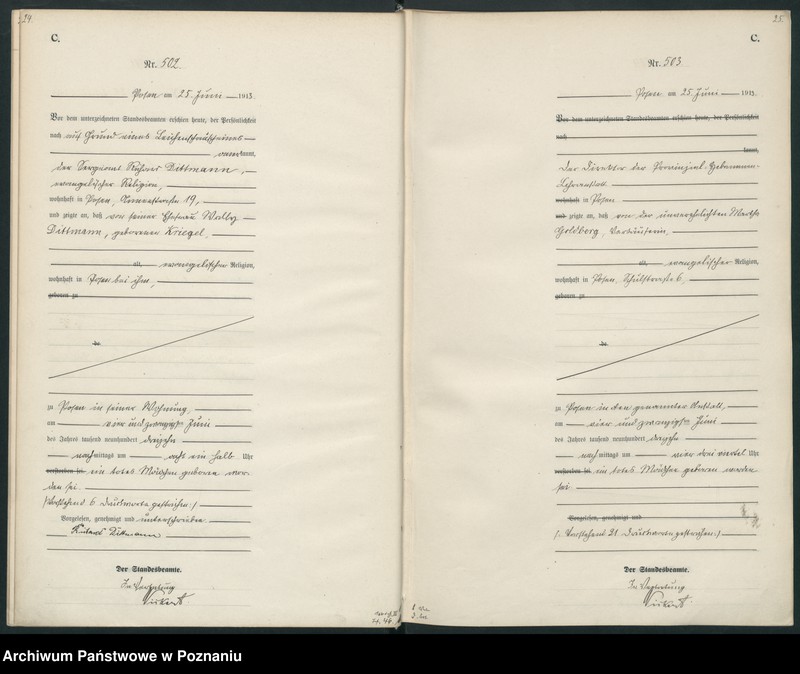 24.
C.
Nr. 502
Posen am 25. Juni 1913.
Vor dem unterzeichneten Standesbeamten erschien heute, der Persönlichkeit
nach auf Grund eines Leichenschauscheines
kannt,
der Sergeant Richard Dittmann,
evangelischer Religion,
wohnhaft in Posen, 19,
und zeigte an, daß von seiner Ehefrau Wally
Dittmann, geborenen Kriegel,
alt, evangelischer Religion,
wohnhaft in Posen bei ihm,
geboren zu
de
zu Posen in seiner Wohnung,
am vier und zwanzigsten Juni
des Jahres tausend neunhundert dreizehn
nachmittags um acht ein halb Uhr
verstorben sei ein totes Mädchen geboren wor-
den sei.
/: Vorstehend 6 Druckworte gestrichen :/
Vorgelesen, genehmigt und unterschrieben
Richard Dittmann
Der Standesbeamte.
In Vertretung
25.
C.
Nr. 503
Posen am 25. Juni 1913.
Vor dem unterzeichneten Standesbeamten erschien heute, der Persönlichkeit
nach
kannt,
Der Direktor der Provinzial-Hebammen-
Lehranstalt
wohnhaft in Posen
und zeigte an, daß von der unverehelichten Martha
Goldberg, Verkäuferin,
alt, evangelischer Religion,
wohnhaft in Posen, Schulstraße 6,
geboren zu
de
zu Posen in der genannten Anstalt,
am vier und zwanzigsten Juni
des Jahres tausend neunhundert dreizehn
nachmittags um vier drei viertel Uhr
verstorben sei ein totes Mädchen geboren worden
sei.
Vorgelesen, genehmigt und
/: Vorstehend 21 Druckworte gestrichen :/
Der Standesbeamte.
In Vertretung
Archiwum Państwowe w Poznaniu